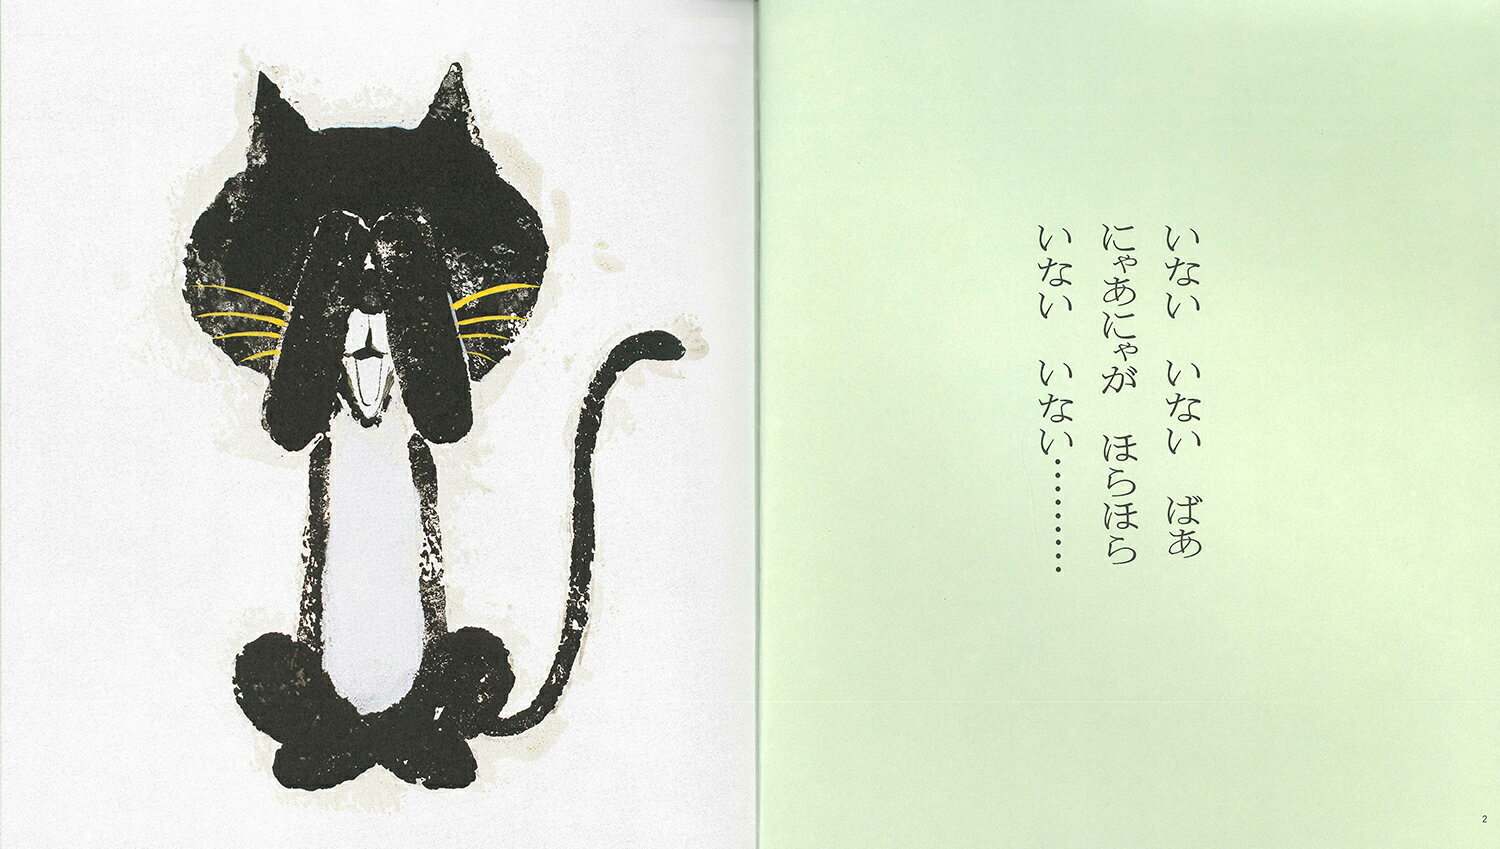 いない　いない　ばあ
にゃあにゃが　ほらほら
いない　いない‥‥‥‥‥
2